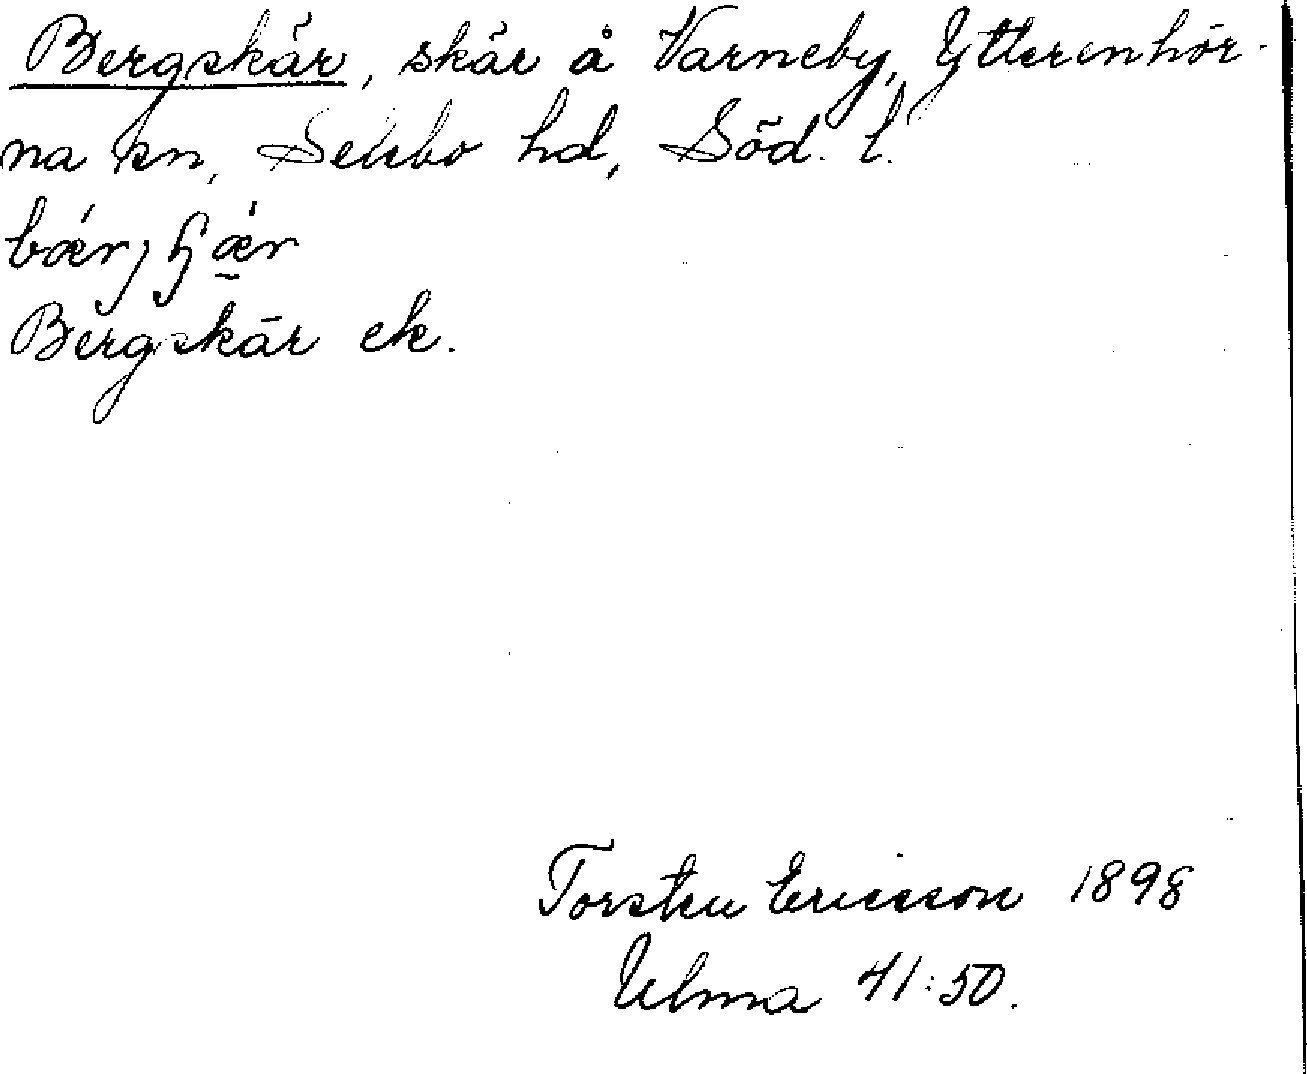 Bergskär, skär å Varneby, Ytterenhör-
na sn, Selebo hd, Söd. l.
Bergskär ek.
Torsten Ericsson 1898
Ulma 41:50.